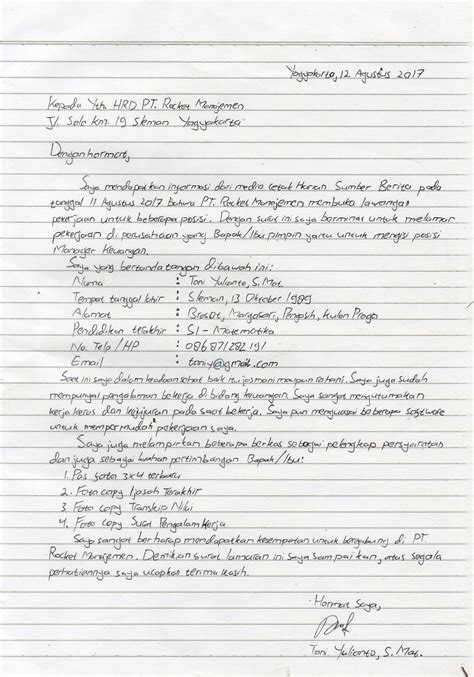 Yogyakarta, 12 Agustus 2017
Kepada Yth. HRD PT. Rocket Manajemen
Jl. Solo km. 19 Sleman Yogyakarta
Dengan hormat,
Saya mendapatkan informasi dari media cetak Harian Sumber Berita pada
tanggal 11 Agustus 2017 bahwa PT. Rocket Manajemen membuka lowongan
pekerjaan untuk beberapa posisi. Dengan surat ini saya berminat untuk melamar
pekerjaan di perusahaan yang Bapak/Ibu pimpin yaitu untuk mengisi posisi
Manager Keuangan.
Saya yang bertanda tangan dibawah ini:
Nama : Toni Yulianto, S.Mat.
Tempat tanggal lahir : Sleman, 13 Oktober 1989
Alamat : Brosot, Margosari, Pengasih, Kulon Progo
Pendidikan terakhir : S1 - Matematika
No. Telp / HP :
Email : toniy@gmail.com
Saat ini saya dalam keadaan sehat baik itu jasmani maupun rohani. Saya juga sudah
mempunyai pengalaman bekerja di bidang keuangan. Saya sangat mengutamakan
kerja keras dan kejujuran pada saat bekerja. Saya pun menguasai beberapa software
untuk mempermudah pekerjaan saya.
Saya juga melampirkan beberapa berkas sebagai pelengkap persyaratan
dan juga sebagai bahan pertimbangan Bapak/Ibu:
1. Pas foto 3x4 terbaru
2. Foto copy Ijasah Terakhir
3. Foto copy Transkip Nilai
4. Foto copy Surat Pengalam Kerja
Saya sangat berharap mendapatkan kesempatan untuk bergabung di PT.
Rocket Manajemen. Demikian surat lamaran ini saya sampaikan, atas segala
perhatiannya saya ucapkan terima kasih.
Hormat Saya,
Toni Yulianto, S.Mat.